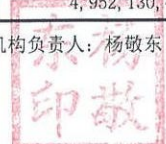 4,952,130,
机构负责人：杨敬东
东杨
印敬